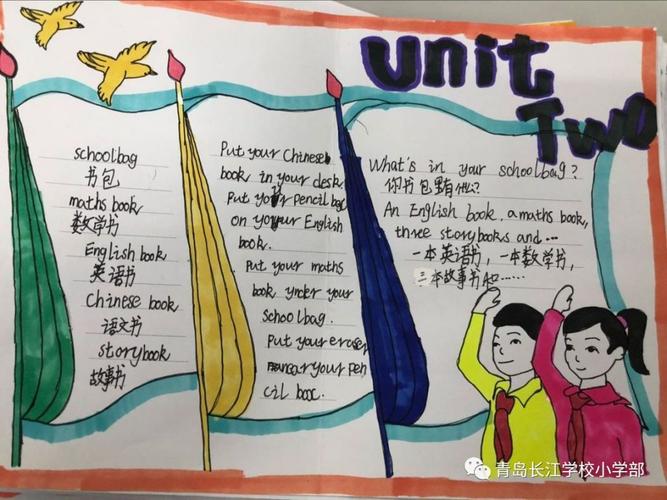 unit
Two
schoolbag
书包
maths book
数学书
English book
英语书
Chinese book
语文书
storybook
故事书
Put your Chinese
book in your desk
Put your pencil bag
on your English
book.
Put your maths
book under your
schoolbag.
Put your eraser
near your pen
cil boox.
What's in your schoolbag?
你书包里有什么?
An English book, a maths book,
three storybooks and...
一本英语书，一本数学书，
三本故事书和……
青岛长江学校小学部